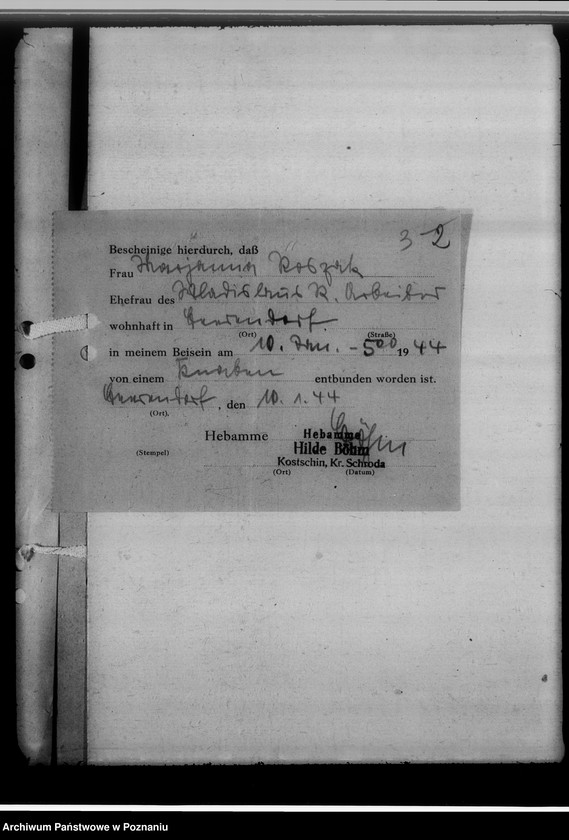 3 2
Bescheinige hierdurch, daß
Frau Marjanna Koszak
Ehefrau des Wladislaus K. Arbeiter
wohnhaft in
(Ort) (Straße)
in meinem Beisein am 10. Jan. - 5⁰⁰ 1944
von einem Knaben entbunden worden ist.
, den 10. 1. 44
(Ort).
Hebamme Böhm
Hebamme
Hilde Böhm
(Stempel)
Kostschin, Kr. Schroda
(Ort) (Datum)
Archiwum Państwowe w Poznaniu